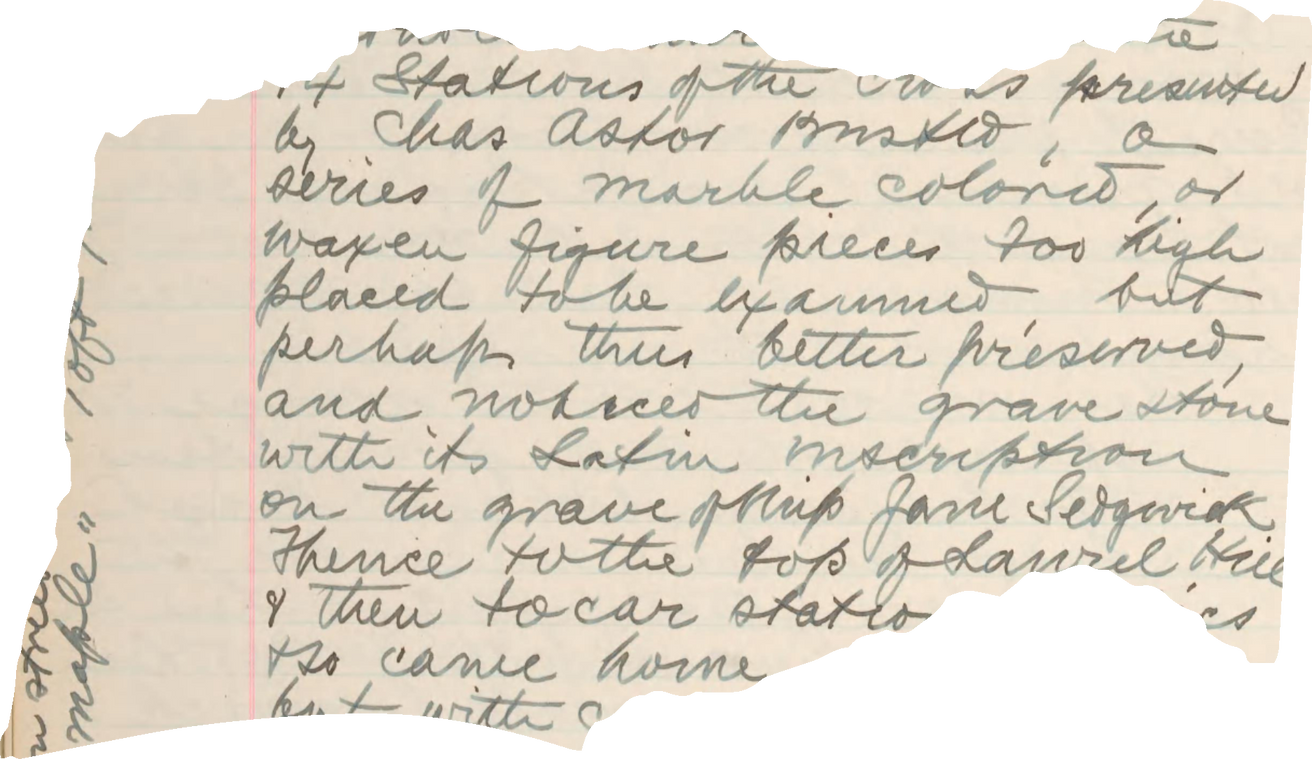 14 Stations of the Cross presented
by Chas Astor Bristed, a
series of marble colored, or
waxen figure pieces too high
placed to be examined but
perhaps thus better preserved,
and noticed the grave stone
with its Latin inscription
on the grave of Miss Jane Sedgwick
Thence to the top of Laurel Hill
& then to car
& so came home
but with
maple"